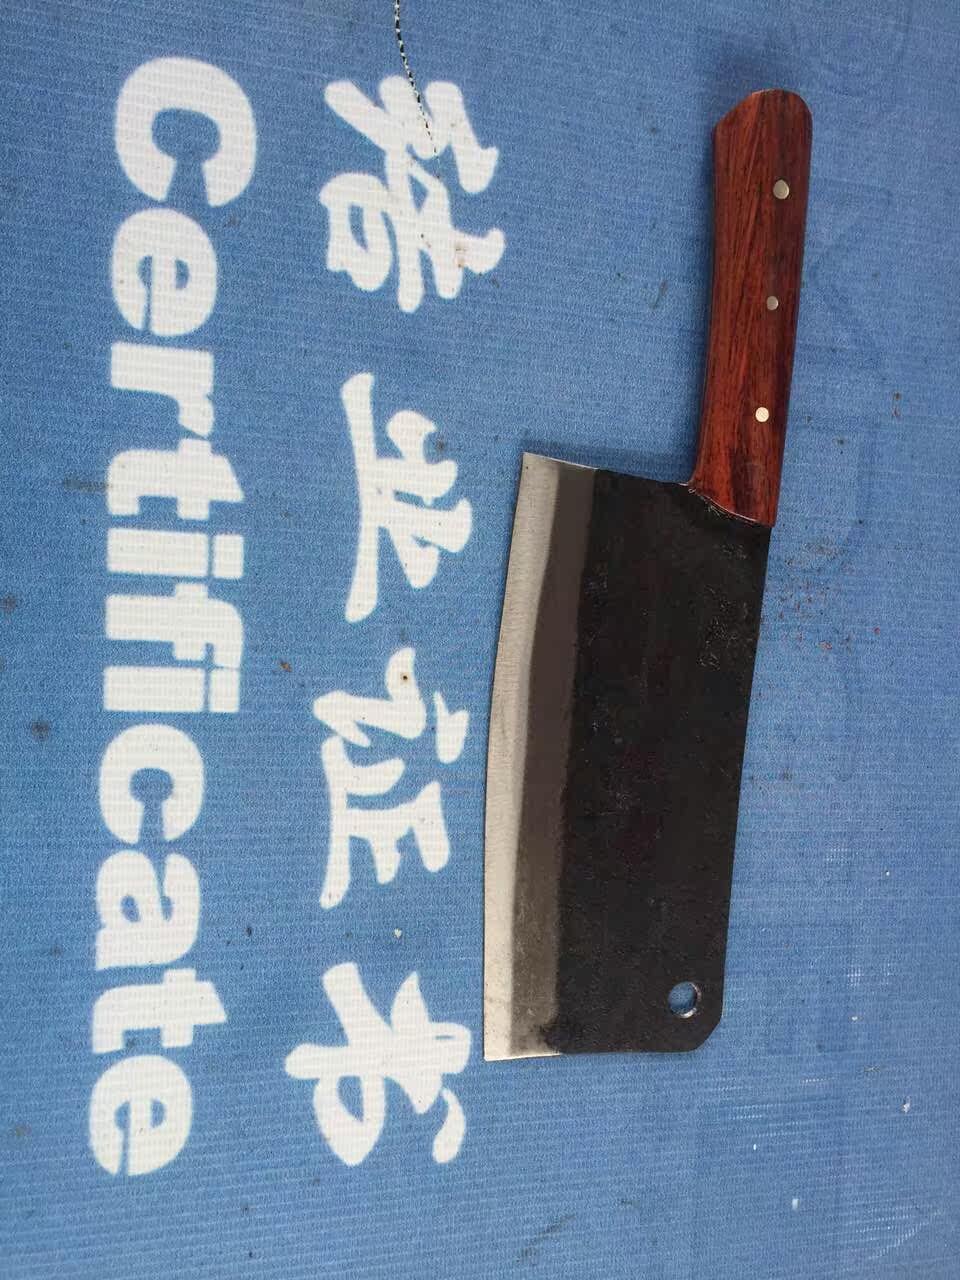 结业证书
Certificate